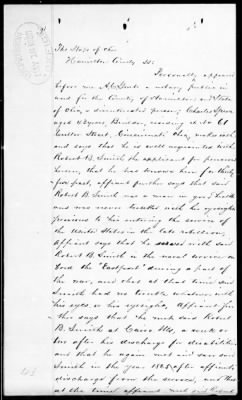 The State of Ohio
Hamilton County SS.
Personally appeared
before me a notary public in
and for the County of Hamilton and State
of Ohio, a disinterested person, Charles
aged years, Builder, residing at No. 61
Street, Cincinnati Ohio, who saith
and says that he is well acquainted with
Robert B. Smith the applicant for pension
herein, that he has known him for thirty
five years, affiant further says that said
Robert B. Smith was a man in good health
and was never trouble with his eyesight
previous to his entering the service of
the United States in the late rebellion,
Affiant says that he served with said
Robert B. Smith in the naval service on
board the "Eastport" during a part of
the war, and that at that time said
Smith had no trouble whatever with
his eyes or his eyesight, Affiant fur
ther says that he met said Robert
B. Smith at Cairo Ills, a week or
two after his discharge for disabilities
and that he again met said
Smith in the year 1865 after affiants
discharge from the service, and that
at the time affiant met said Robert